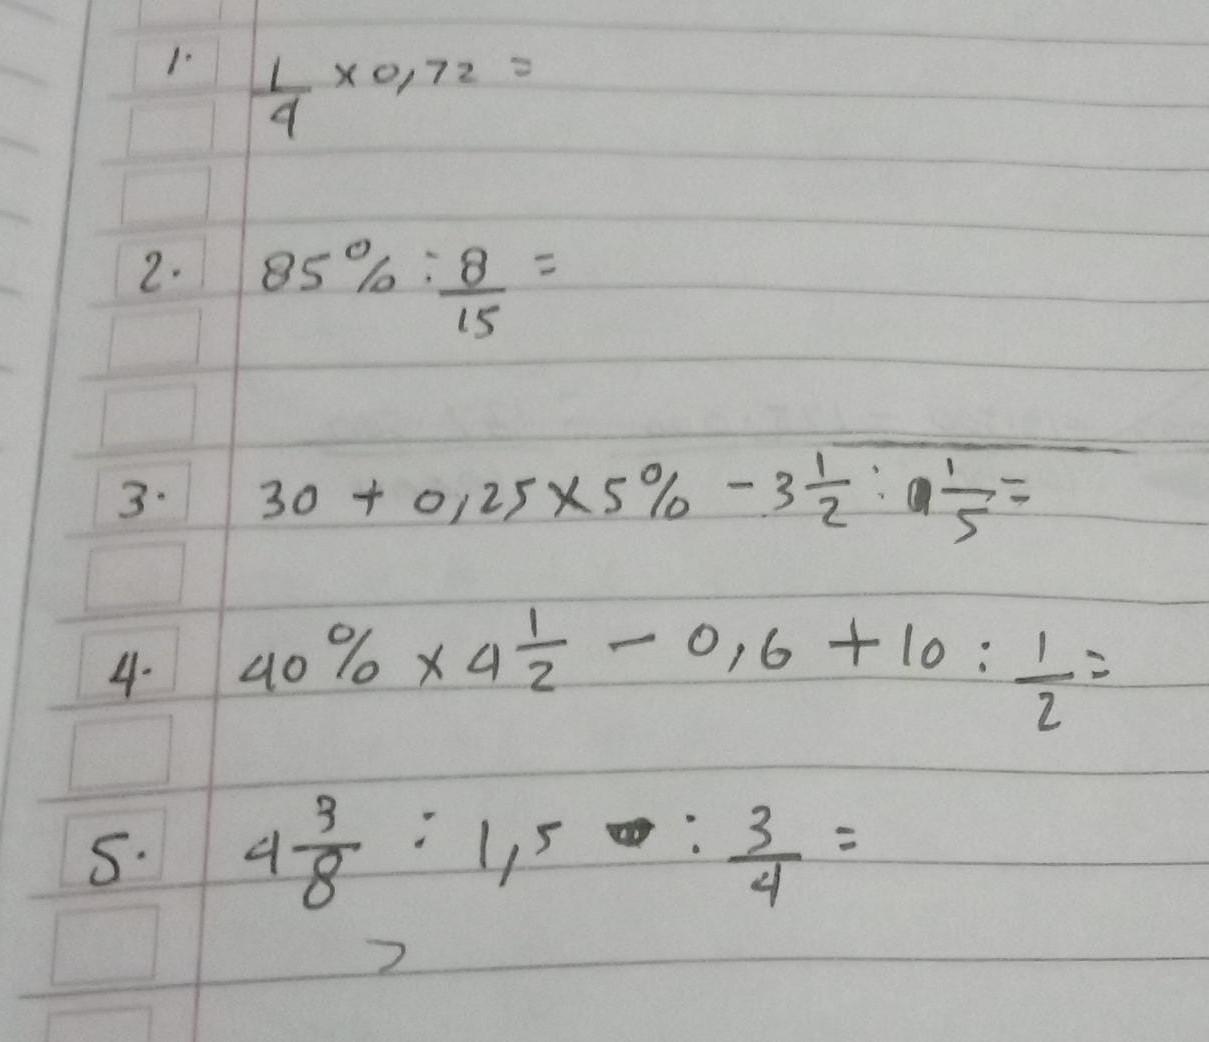 1. 1/4 x 0,72 =
2. 85% : 8/15 =
3. 30 + 0,25 x 5% - 3 1/2 : 1/5 =
4. 40% x 4 1/2 - 0,6 + 10 : 1/2 =
5. 4 3/8 : 1,5 : 3/4 =